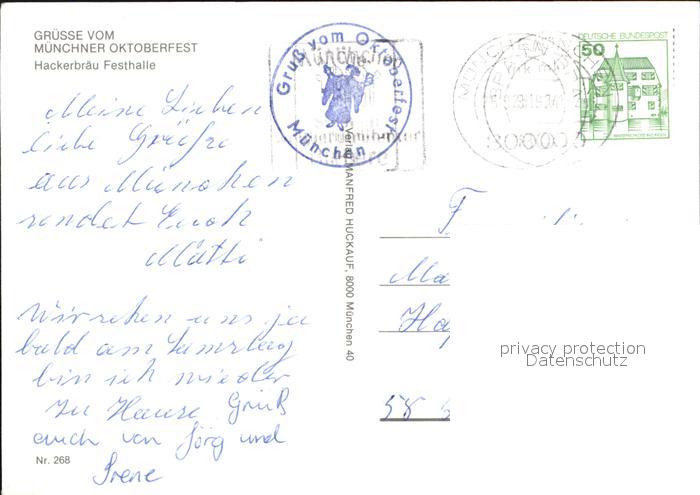 GRÜSSE VOM
MÜNCHNER OKTOBERFEST
Hackerbräu Festhalle
Gruß vom Oktoberfest
München
Münchner
DEUTSCHE BUNDESPOST
50
80000
Meine Lieben
liebe Grüße
aus München
sendet Euch
Verlag MANFRED HUCKAUF, 8000 München 40
Wir sehen uns ja
bald am Samstag
bin ich wieder
zu Hause. Gruß
auch von Jörg und
Irene
Nr. 268
Ma
Ha
58
privacy protection
Datenschutz